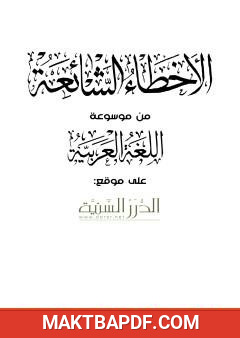 الأخطاء الشائعة
من موسوعة
اللغة العربية
على موقع:
الدرر السنية
www.dorar.net
MAKTBAPDF.COM